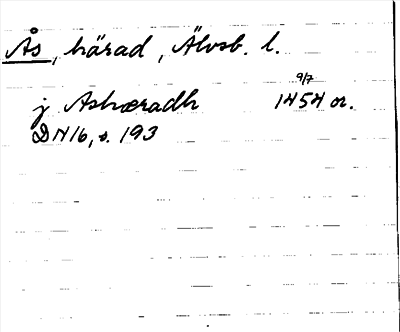 Ås, härad, Älvsb. l.
j Ashæradh 9/7 1454 or.
DN 16, s. 193